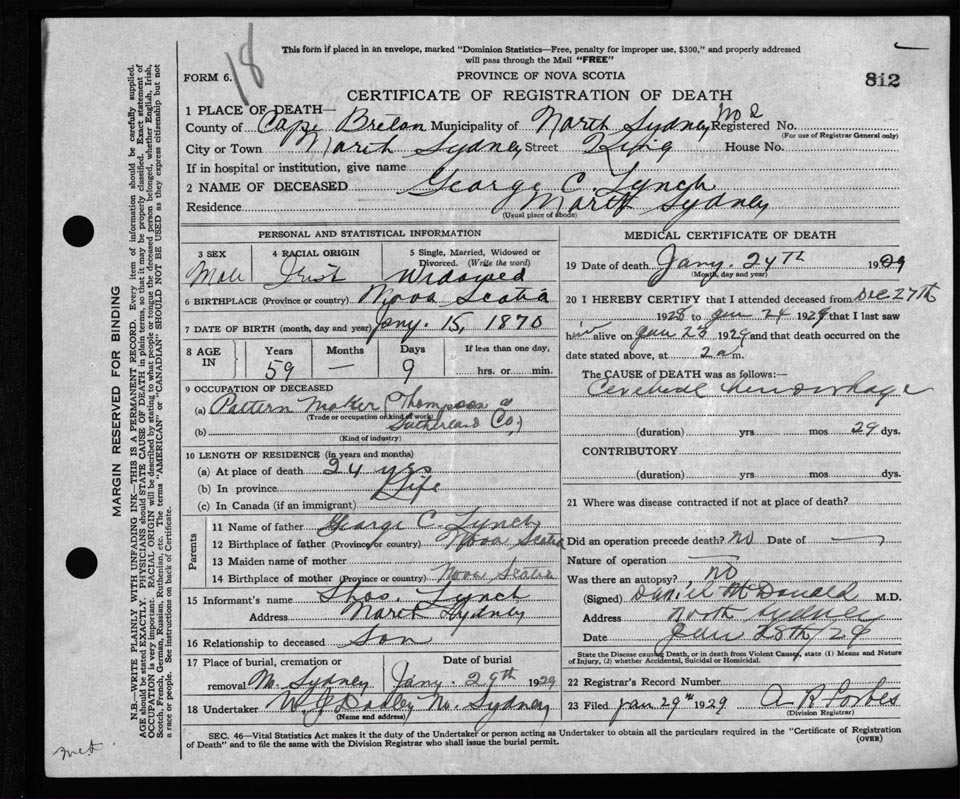 18
This form if placed in an envelope, marked "Dominion Statistics—Free, penalty for improper use, $300," and properly addressed
will pass through the Mail "FREE"
FORM 6.
PROVINCE OF NOVA SCOTIA
812
CERTIFICATE OF REGISTRATION OF DEATH
1 PLACE OF DEATH—
County of Cape Breton Municipality of North Sydney Registered No.
(For use of Registrar General only)
City or Town North Sydney Street House No.
If in hospital or institution, give name
2 NAME OF DECEASED George C. Lynch
Residence North Sydney
(Usual place of abode)
PERSONAL AND STATISTICAL INFORMATION
3 SEX 4 RACIAL ORIGIN 5 Single, Married, Widowed or
Divorced. (Write the word)
Male Irish Widowed
6 BIRTHPLACE (Province or country) Nova Scotia
7 DATE OF BIRTH (month, day and year) Jany. 15, 1870
8 AGE IN Years Months Days If less than one day,
59 — 9 hrs. or min.
9 OCCUPATION OF DECEASED
(a) Pattern Maker (Thompson &
(Trade or occupation or kind of work)
Sutherland Co.)
(b)
(Kind of industry)
10 LENGTH OF RESIDENCE (in years and months)
(a) At place of death 24 yrs
(b) In province Life
(c) In Canada (if an immigrant)
Parents
11 Name of father George C. Lynch
12 Birthplace of father (Province or country) Nova Scotia
13 Maiden name of mother
14 Birthplace of mother (Province or country) Nova Scotia
15 Informant's name Thos. Lynch
Address North Sydney
16 Relationship to deceased Son
17 Place of burial, cremation or Date of burial
removal N. Sydney Jany. 29th 1929
18 Undertaker No. Sydney
(Name and address)
MEDICAL CERTIFICATE OF DEATH
19 Date of death Jany. 24th 1929
(Month, day and year)
20 I HEREBY CERTIFY that I attended deceased from Dec 27th
1928 to Jan 24 1929 that I last saw
him alive on Jan 23 1929 and that death occurred on the
date stated above, at 2 a m.
The CAUSE OF DEATH was as follows:
Cerebral hemorrhage
(duration) yrs mos 29 dys.
CONTRIBUTORY
(duration) yrs mos dys.
21 Where was disease contracted if not at place of death?
Did an operation precede death? No Date of —
Nature of operation —
Was there an autopsy? no
(Signed) Daniel McDonald M.D.
Address North Sydney
Date Jan 28th/29
State the Disease causing Death, or in death from Violent Causes, state (1) Means and Nature
of Injury, (2) whether Accidental, Suicidal or Homicidal.
22 Registrar's Record Number
23 Filed Jan 29th 1929 A R Forbes
(Division Registrar)
SEC. 46—Vital Statistics Act makes it the duty of the Undertaker or person acting as Undertaker to obtain all the particulars required in the "Certificate of Registration
of Death" and to file the same with the Division Registrar who shall issue the burial permit.
(OVER)
MARGIN RESERVED FOR BINDING
N.B.—WRITE PLAINLY WITH UNFADING INK—THIS IS A PERMANENT RECORD. Every item of information should be carefully supplied.
AGE should be stated EXACTLY. PHYSICIANS should STATE CAUSE OF DEATH in plain terms, so that it may be properly classified. Exact statement of
OCCUPATION is very important. RACIAL ORIGIN will be described by stating to what people or tongue the deceased person belonged, whether English, Irish,
Scotch, French, German, Russian, Ruthenian, etc. The terms "AMERICAN" or "CANADIAN" SHOULD NOT BE USED as they express citizenship but not
a race or people. See instructions on back of Certificate.